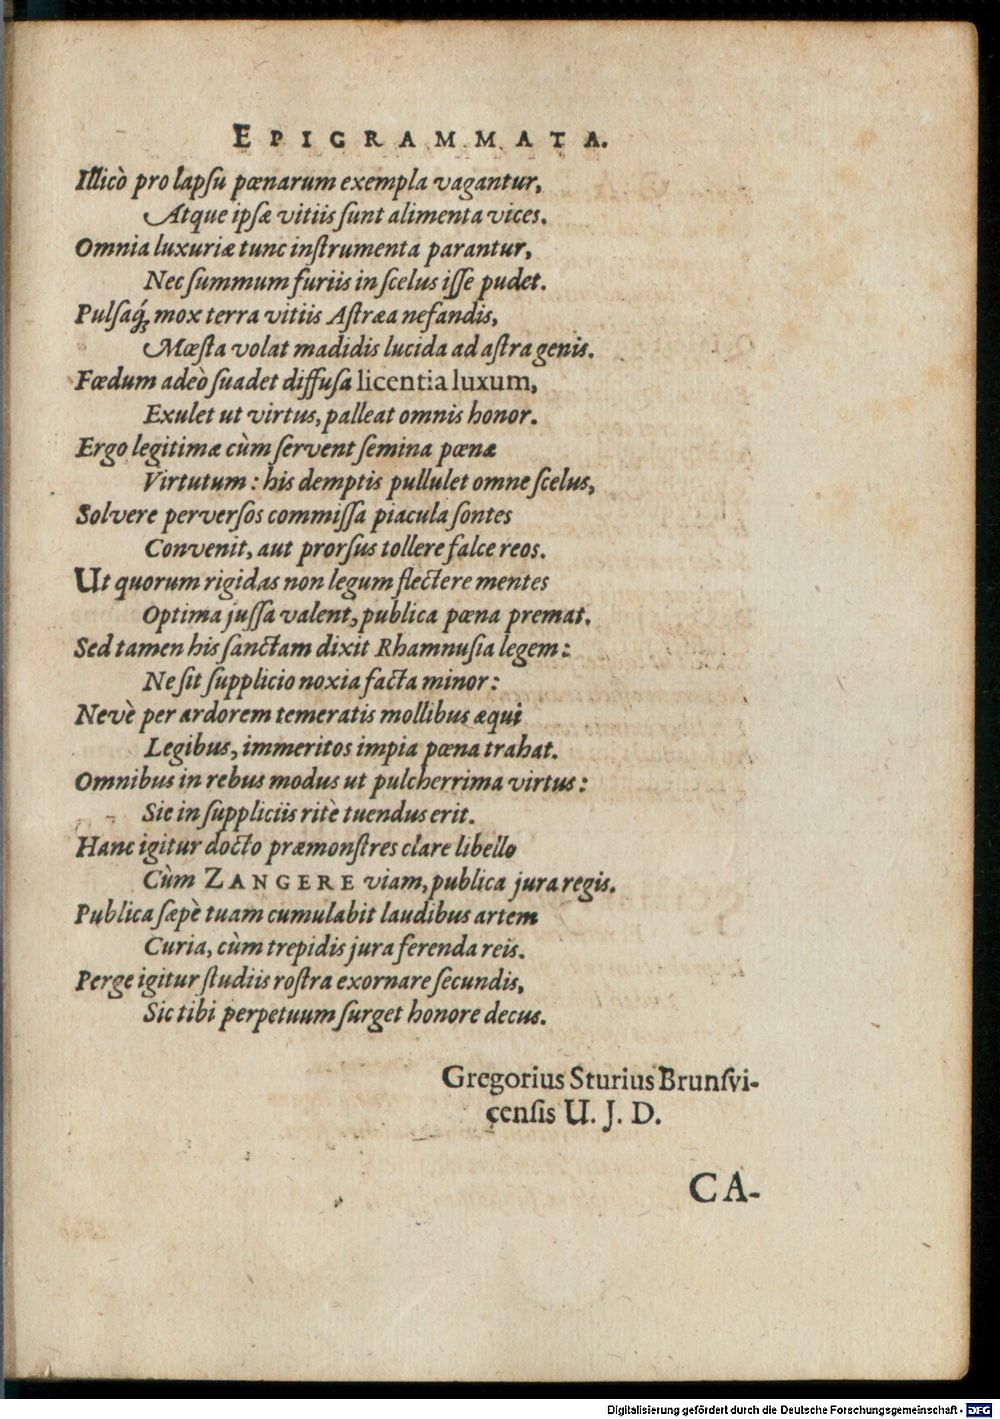 EPIGRAMMATA.
Illicò pro lapſu pœnarum exempla vagantur,
Atque ipſæ vitiis ſunt alimenta vices.
Omnia luxuriæ tunc inſtrumenta parantur,
Nec ſummum furiis in ſcelus iſſe pudet.
Pulſaq́; mox terra vitiis Aſtræa nefandis,
Mœſta volat madidis lucida ad aſtra genis.
Fœdum adeò ſuadet diffuſa licentia luxum,
Exulet ut virtus, palleat omnis honor.
Ergo legitimæ cùm ſervent ſemina pœnæ
Virtutum: his demptis pullulet omne ſcelus,
Solvere perverſos commiſſa piacula ſontes
Convenit, aut prorſus tollere falce reos.
Ut quorum rigidas non legum flectere mentes
Optima juſſa valent, publica pœna premat.
Sed tamen his ſanctam dixit Rhamnuſia legem:
Ne ſit ſupplicio noxia facta minor:
Nevè per ardorem temeratis mollibus æqui
Legibus, immeritos impia pœna trahat.
Omnibus in rebus modus ut pulcherrima virtus:
Sic in ſuppliciis ritè tuendus erit.
Hanc igitur docto præmonſtres clare libello
Cùm ZANGERE viam, publica jura regis.
Publica ſæpè tuam cumulabit laudibus artem
Curia, cùm trepidis jura ferenda reis.
Perge igitur ſtudiis roſtra exornare ſecundis,
Sic tibi perpetuum ſurget honore decus.
Gregorius Sturius Brunſvi-
cenſis U. J. D.
CA-
Digitalisierung gefördert durch die Deutsche Forschungsgemeinschaft - DFG